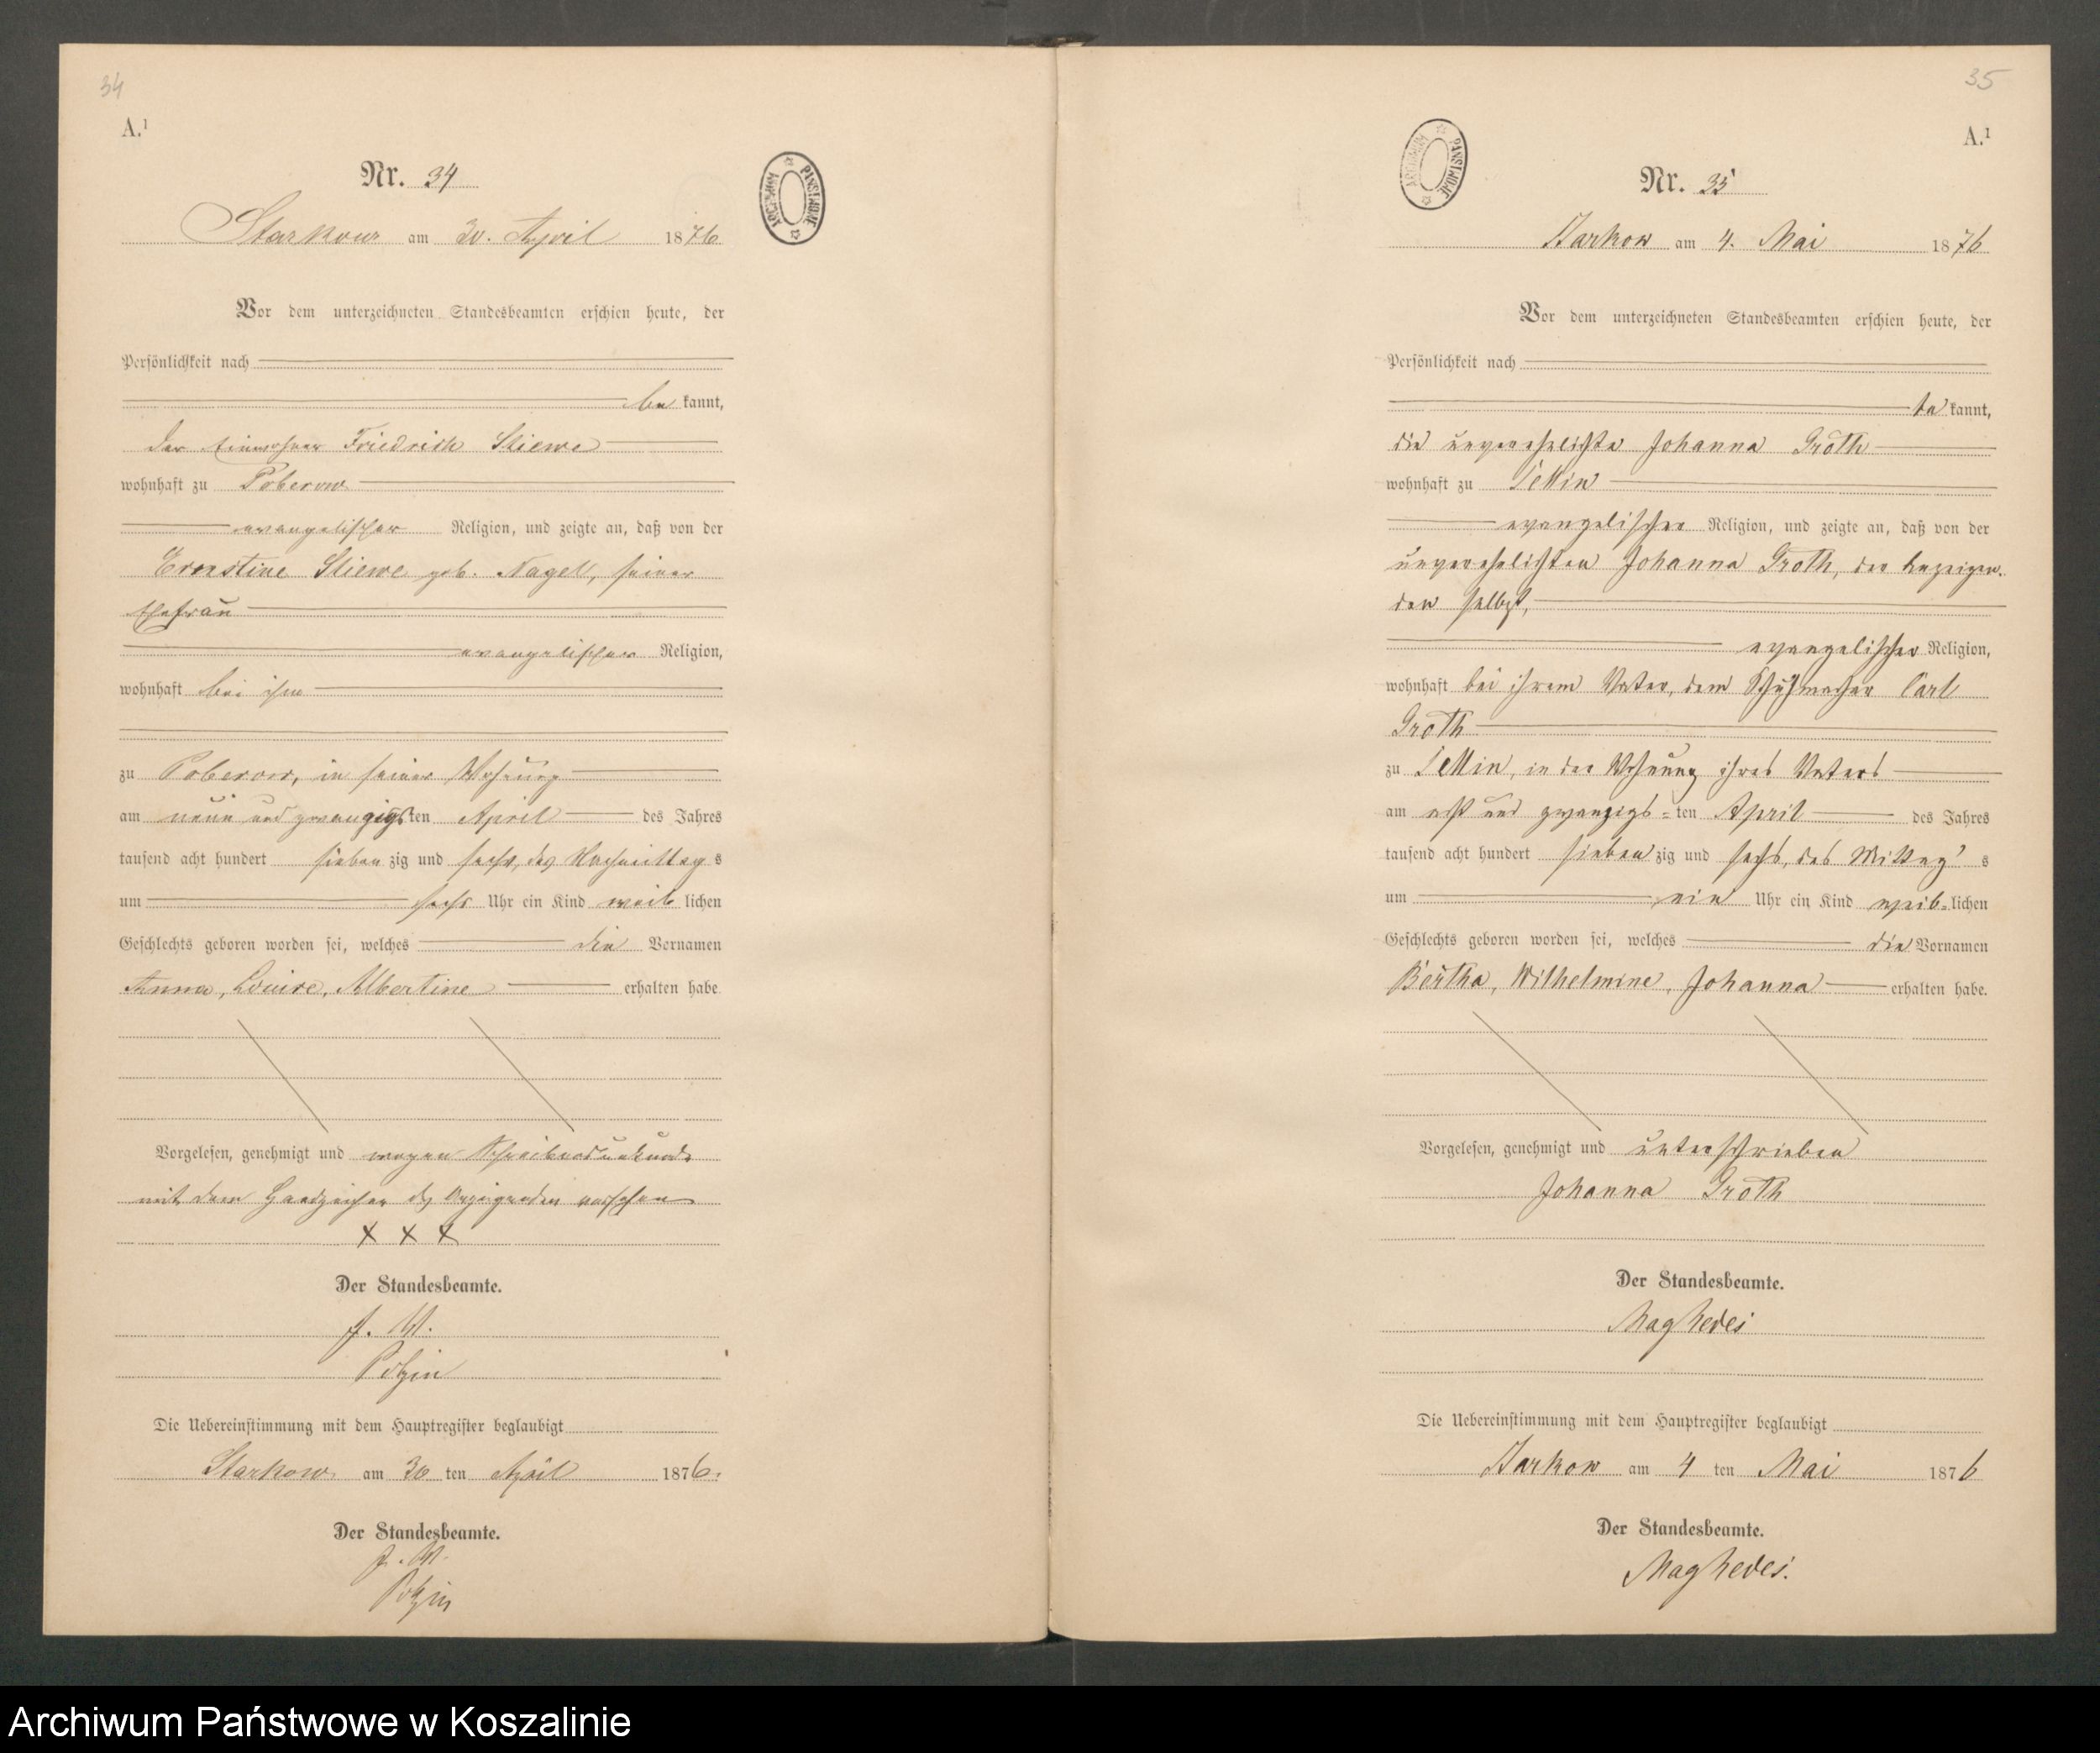 34
A.¹
Nr. 34
Starkow am 30. April 1876
Vor dem unterzeichneten Standesbeamten erschien heute, der
Persönlichkeit nach
be kannt,
der Einwohner Friedrich Stiewe
wohnhaft zu Poberow
evangelischer Religion, und zeigte an, daß von der
Ernstine Stiewe geb. Nagel, seiner
Ehefrau
evangelischer Religion,
wohnhaft bei ihm
zu Poberow, in seiner Wohnung
am neun und zwanzigsten April des Jahres
tausend acht hundert sieben zig und sechs, des Nachmittags
um sechs Uhr ein Kind weib lichen
Geschlechts geboren worden sei, welches die Vornamen
Anna, Louise, Albertine erhalten habe
Vorgelesen, genehmigt und wegen Schreibensunkunde
mit dem Handzeichen des Anzeigenden versehen
X X X
Der Standesbeamte.
J. V.
Polzin
Die Uebereinstimmung mit dem Hauptregister beglaubigt
Starkow am 30 ten April 1876.
Der Standesbeamte.
J. V.
Polzin
ARCHIWUM PAŃSTWOWE
35
A.¹
ARCHIWUM PAŃSTWOWE
Nr. 35
Starkow am 4. Mai 1876
Vor dem unterzeichneten Standesbeamten erschien heute, der
Persönlichkeit nach
be kannt,
die unverehelichte Johanna Groth
wohnhaft zu Tettin
evangelischer Religion, und zeigte an, daß von der
unverehelichten Johanna Groth, der Anzeigen-
den selbst,
evangelischer Religion,
wohnhaft bei ihrem Vater, dem Schuhmacher Carl
Groth
zu Tettin, in der Wohnung ihres Vaters
am acht und zwanzigs-ten April des Jahres
tausend acht hundert sieben zig und sechs, des Mittag's
um ein Uhr ein Kind weib-lichen
Geschlechts geboren worden sei, welches die Vornamen
Bertha, Wilhelmine, Johanna erhalten habe.
Vorgelesen, genehmigt und unterschrieben
Johanna Groth
Der Standesbeamte.
Die Uebereinstimmung mit dem Hauptregister beglaubigt
Starkow am 4 ten Mai 1876
Der Standesbeamte.
Archiwum Państwowe w Koszalinie